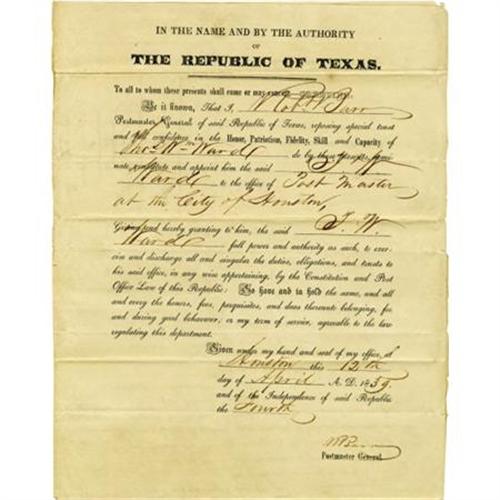 IN THE NAME AND BY THE AUTHORITY
OF
THE REPUBLIC OF TEXAS.
To all to whom these presents shall come or may
Be it known, That I, Rob W Barr
Postmaster General of said Republic of Texas, reposing special trust
and confidence in the Honor, Patriotism, Fidelity, Skill and Capacity of
Wm Ward do by these presents, nominate
and appoint him the said
Ward to the office of Post Master
at the City of Houston,
Giving and hereby granting to him, the said T. W.
Ward full power and authority as such, to exercise
and discharge all and singular the duties, obligations, and
his said office, in any wise appertaining, by the Constitution and Post
Office Law of this Republic: To have and to hold the same, and all
and every the honors, fees, perquisites, and dues thereunto belonging, for
and during good behaviour, or my term of service, agreeable to the law
regulating this department.
Given under my hand and seal of my office, at
Houston this 12th
day of April A. D. 1839.
and of the Independence of said Republic
the Fourth
Barr
Postmaster General.